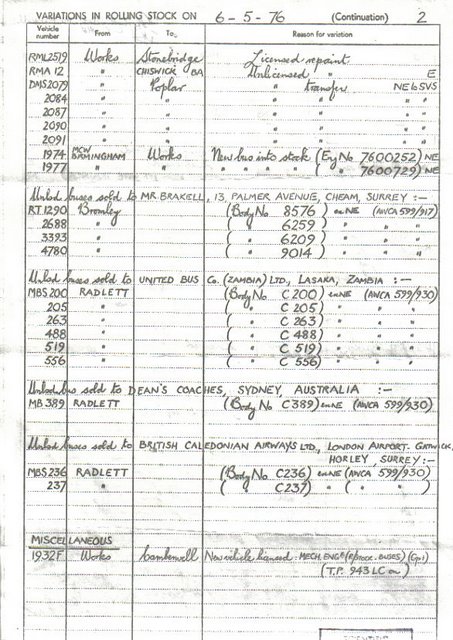 VARIATIONS IN ROLLING STOCK ON 6-5-76 (Continuation) 2
Vehicle number From To Reason for variation
RML2519 Works Stonebridge Licensed repaint.
RMA 12 " CHISWICK BA Unlicensed " E
DMS2079 " Poplar " transfer NE to SVS
2084 " " " " "
2087 " " " " "
2090 " " " " "
2091 " " " " "
1974 MCW BIRMINGHAM Works New bus into stock (Eng No 7600252) NE
1977 " " " " " " ( " 7600729) NE
Unlcd buses sold to MR. BRAKELL, 13, PALMER AVENUE, CHEAM, SURREY :-
RT 1290 Bromley (Body No 8576) NE (AWCA 599/917)
2688 " ( " 6259) " " "
3393 " ( " 6209) " " "
4780 " ( " 9014) " " "
Unlcd buses sold to UNITED BUS Co. (ZAMBIA) LTD., LASAKA, ZAMBIA :-
MBS 200 RADLETT (Body No C200) NE (AWCA 599/930)
205 " ( " C 205) " " "
263 " ( " C 263) " " "
488 " ( " C 488) " " "
519 " ( " C 519) " " "
556 " ( " C 556) " " "
Unlcd bus sold to DEAN'S COACHES, SYDNEY, AUSTRALIA :-
MB 389 RADLETT (Body No C389) NE (AWCA 599/930)
Unlcd buses sold to BRITISH CALEDONIAN AIRWAYS LTD., LONDON AIRPORT- GATWICK,
HORLEY, SURREY:-
MBS236 RADLETT (Body No C236) NE (AWCA 599/930)
237 " ( " C237) " ( " " )
MISCELLANEOUS
1932F Works Camberwell New vehicle licensed. MECH. ENGR (R/STOCK-BUSES) (Gp1)
(T.P. 943 LC on )